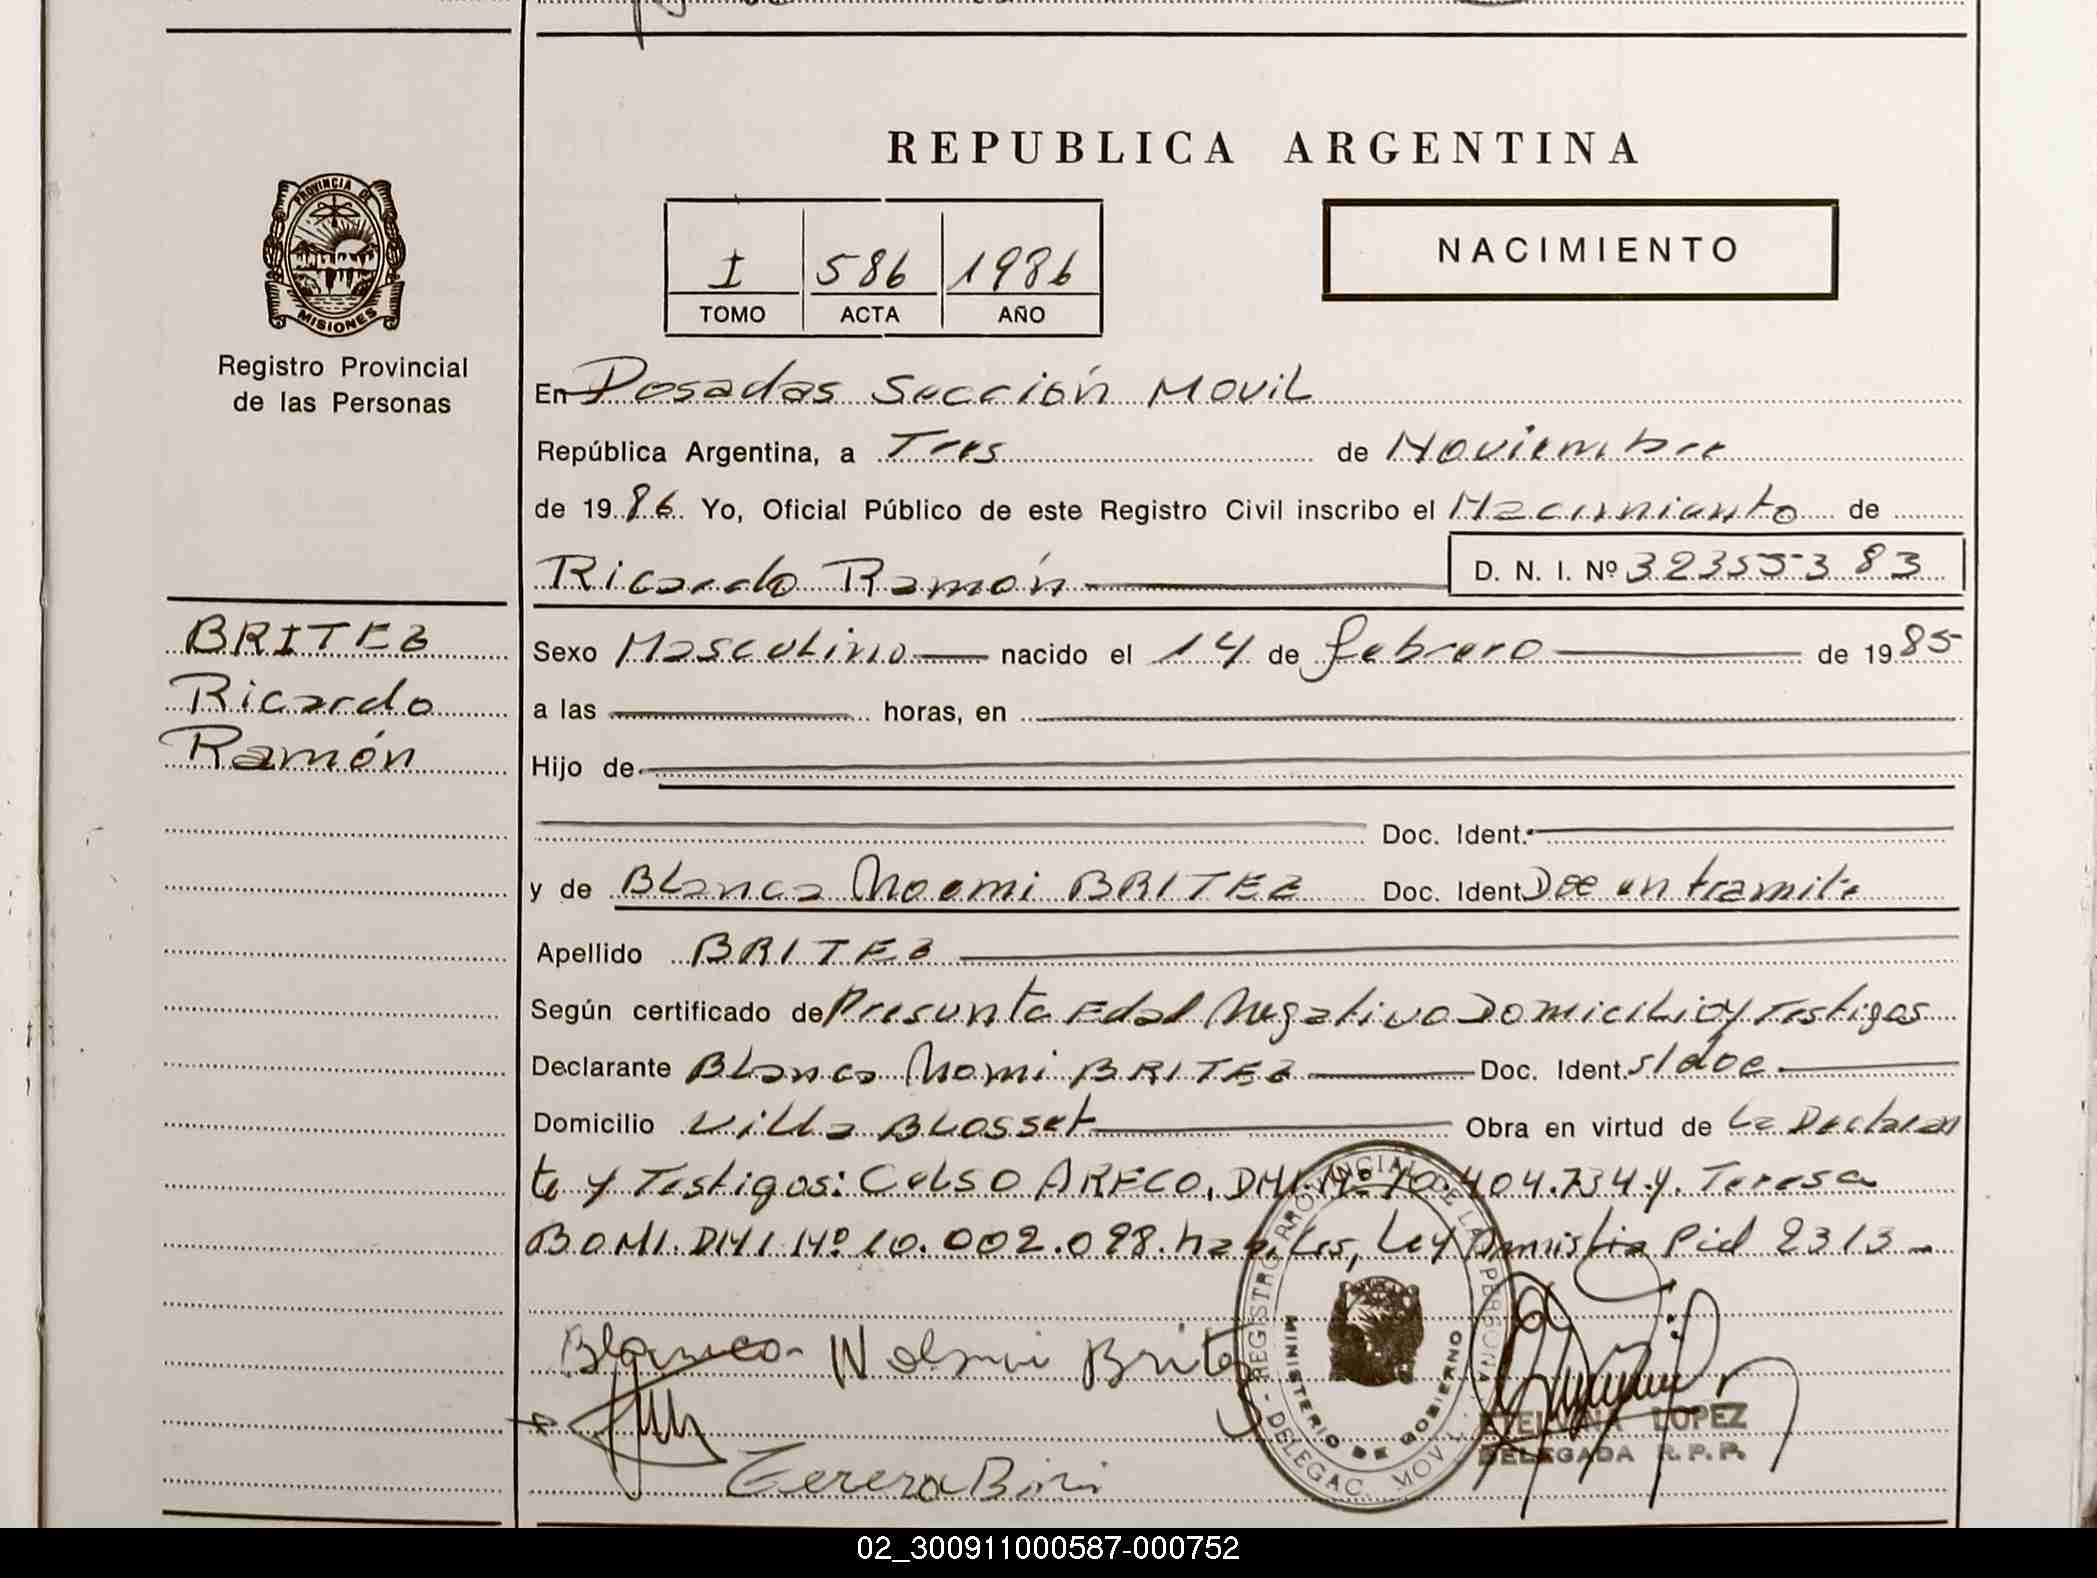 REPUBLICA ARGENTINA
PROVINCIA DE
MISIONES
Registro Provincial
de las Personas
I 586 1986
TOMO ACTA AÑO
NACIMIENTO
En Posadas Sección Movil
República Argentina, a Tres de Noviembre
de 1986 Yo, Oficial Público de este Registro Civil inscribo el Nacimiento de
Ricardo Ramón D. N. I. Nº 32355383
BRITEZ
Ricardo
Ramón
Sexo Masculino nacido el 14 de febrero de 1985
a las horas, en
Hijo de
Doc. Ident.
y de Blanca Noemi BRITEZ Doc. Ident Doc en tramite
Apellido BRITEZ
Según certificado de Presunta Edad Negativo Domicilio y Testigos
Declarante Blanca Noemi BRITEZ Doc. Ident. s/doc
Domicilio Villa BLOSSET Obra en virtud de la Declaran
te y Testigos: Celso ARECO, DNI. Nº 10.404.734 y Teresa
DNI Nº 10.002.098. habiles, Ley Amnistia Pcial 2313
Blanca Britez
Teresa
REGISTRO PROVINCIAL DE LAS PERSONAS
MINISTERIO DE GOBIERNO
DELEGAC. MOVIL
ETELVINA LOPEZ
DELEGADA R.P.P.
02_300911000587-000752